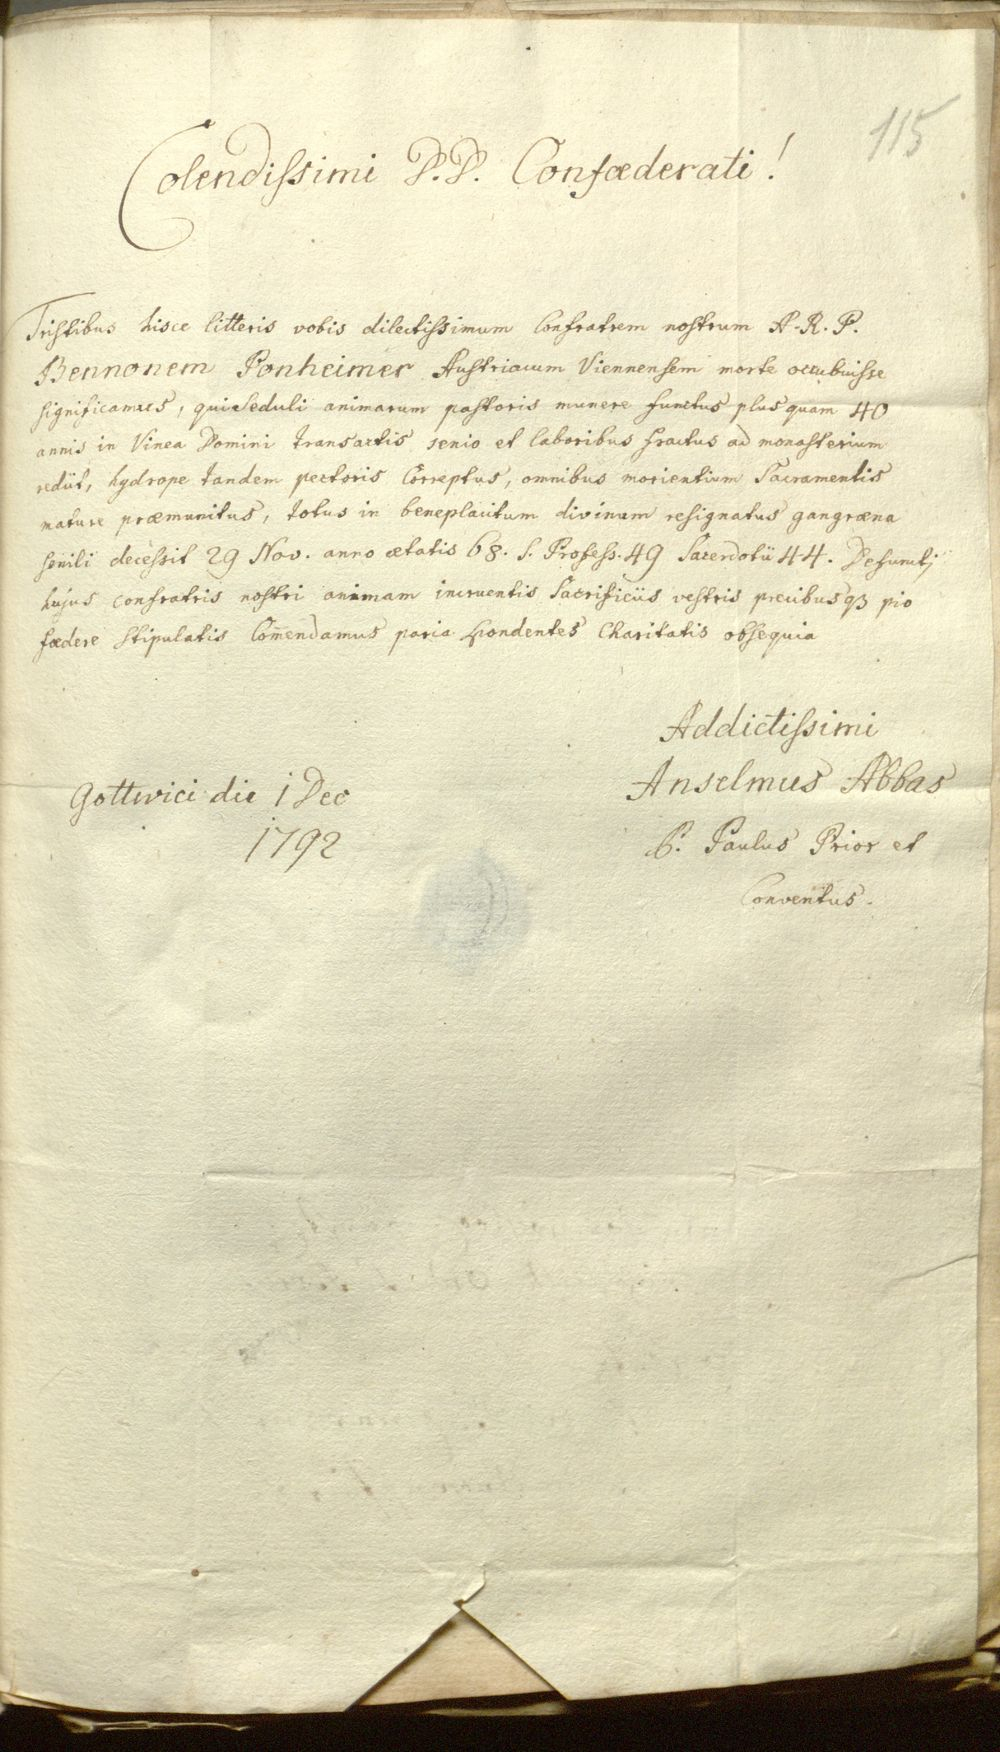 115
Colendissimi P.P. Confœderati!
Tristibus hisce litteris vobis dilectissimum Confratrem nostrum A. R. P.
Bennonem Ponheimer Austriacum Viennensem morte occubuisse
significamus, qui seduli animarum pastoris munere functus plus quam 40
annis in Vinea Domini transactis senio et laboribus fractus ad monasterium
rediit, hydrope tandem pectoris Correptus, omnibus morientium Sacramentis
mature præmunitus, totus in beneplacitum divinum resignatus gangræna
senili decessit 29 Nov. anno ætatis 68. S. Profess. 49 Sacerdotii 44. Defuncti
hujus confratris nostri animam incruentis Sacrificiis vestris precibusqȝ pio
fœdere stipulatis Com̄endamus paria spondentes Charitatis obsequia
Addictissimi
Gottwici die 1 Dec
1792
Anselmus Abbas
P. Paulus Prior et
Conventus.